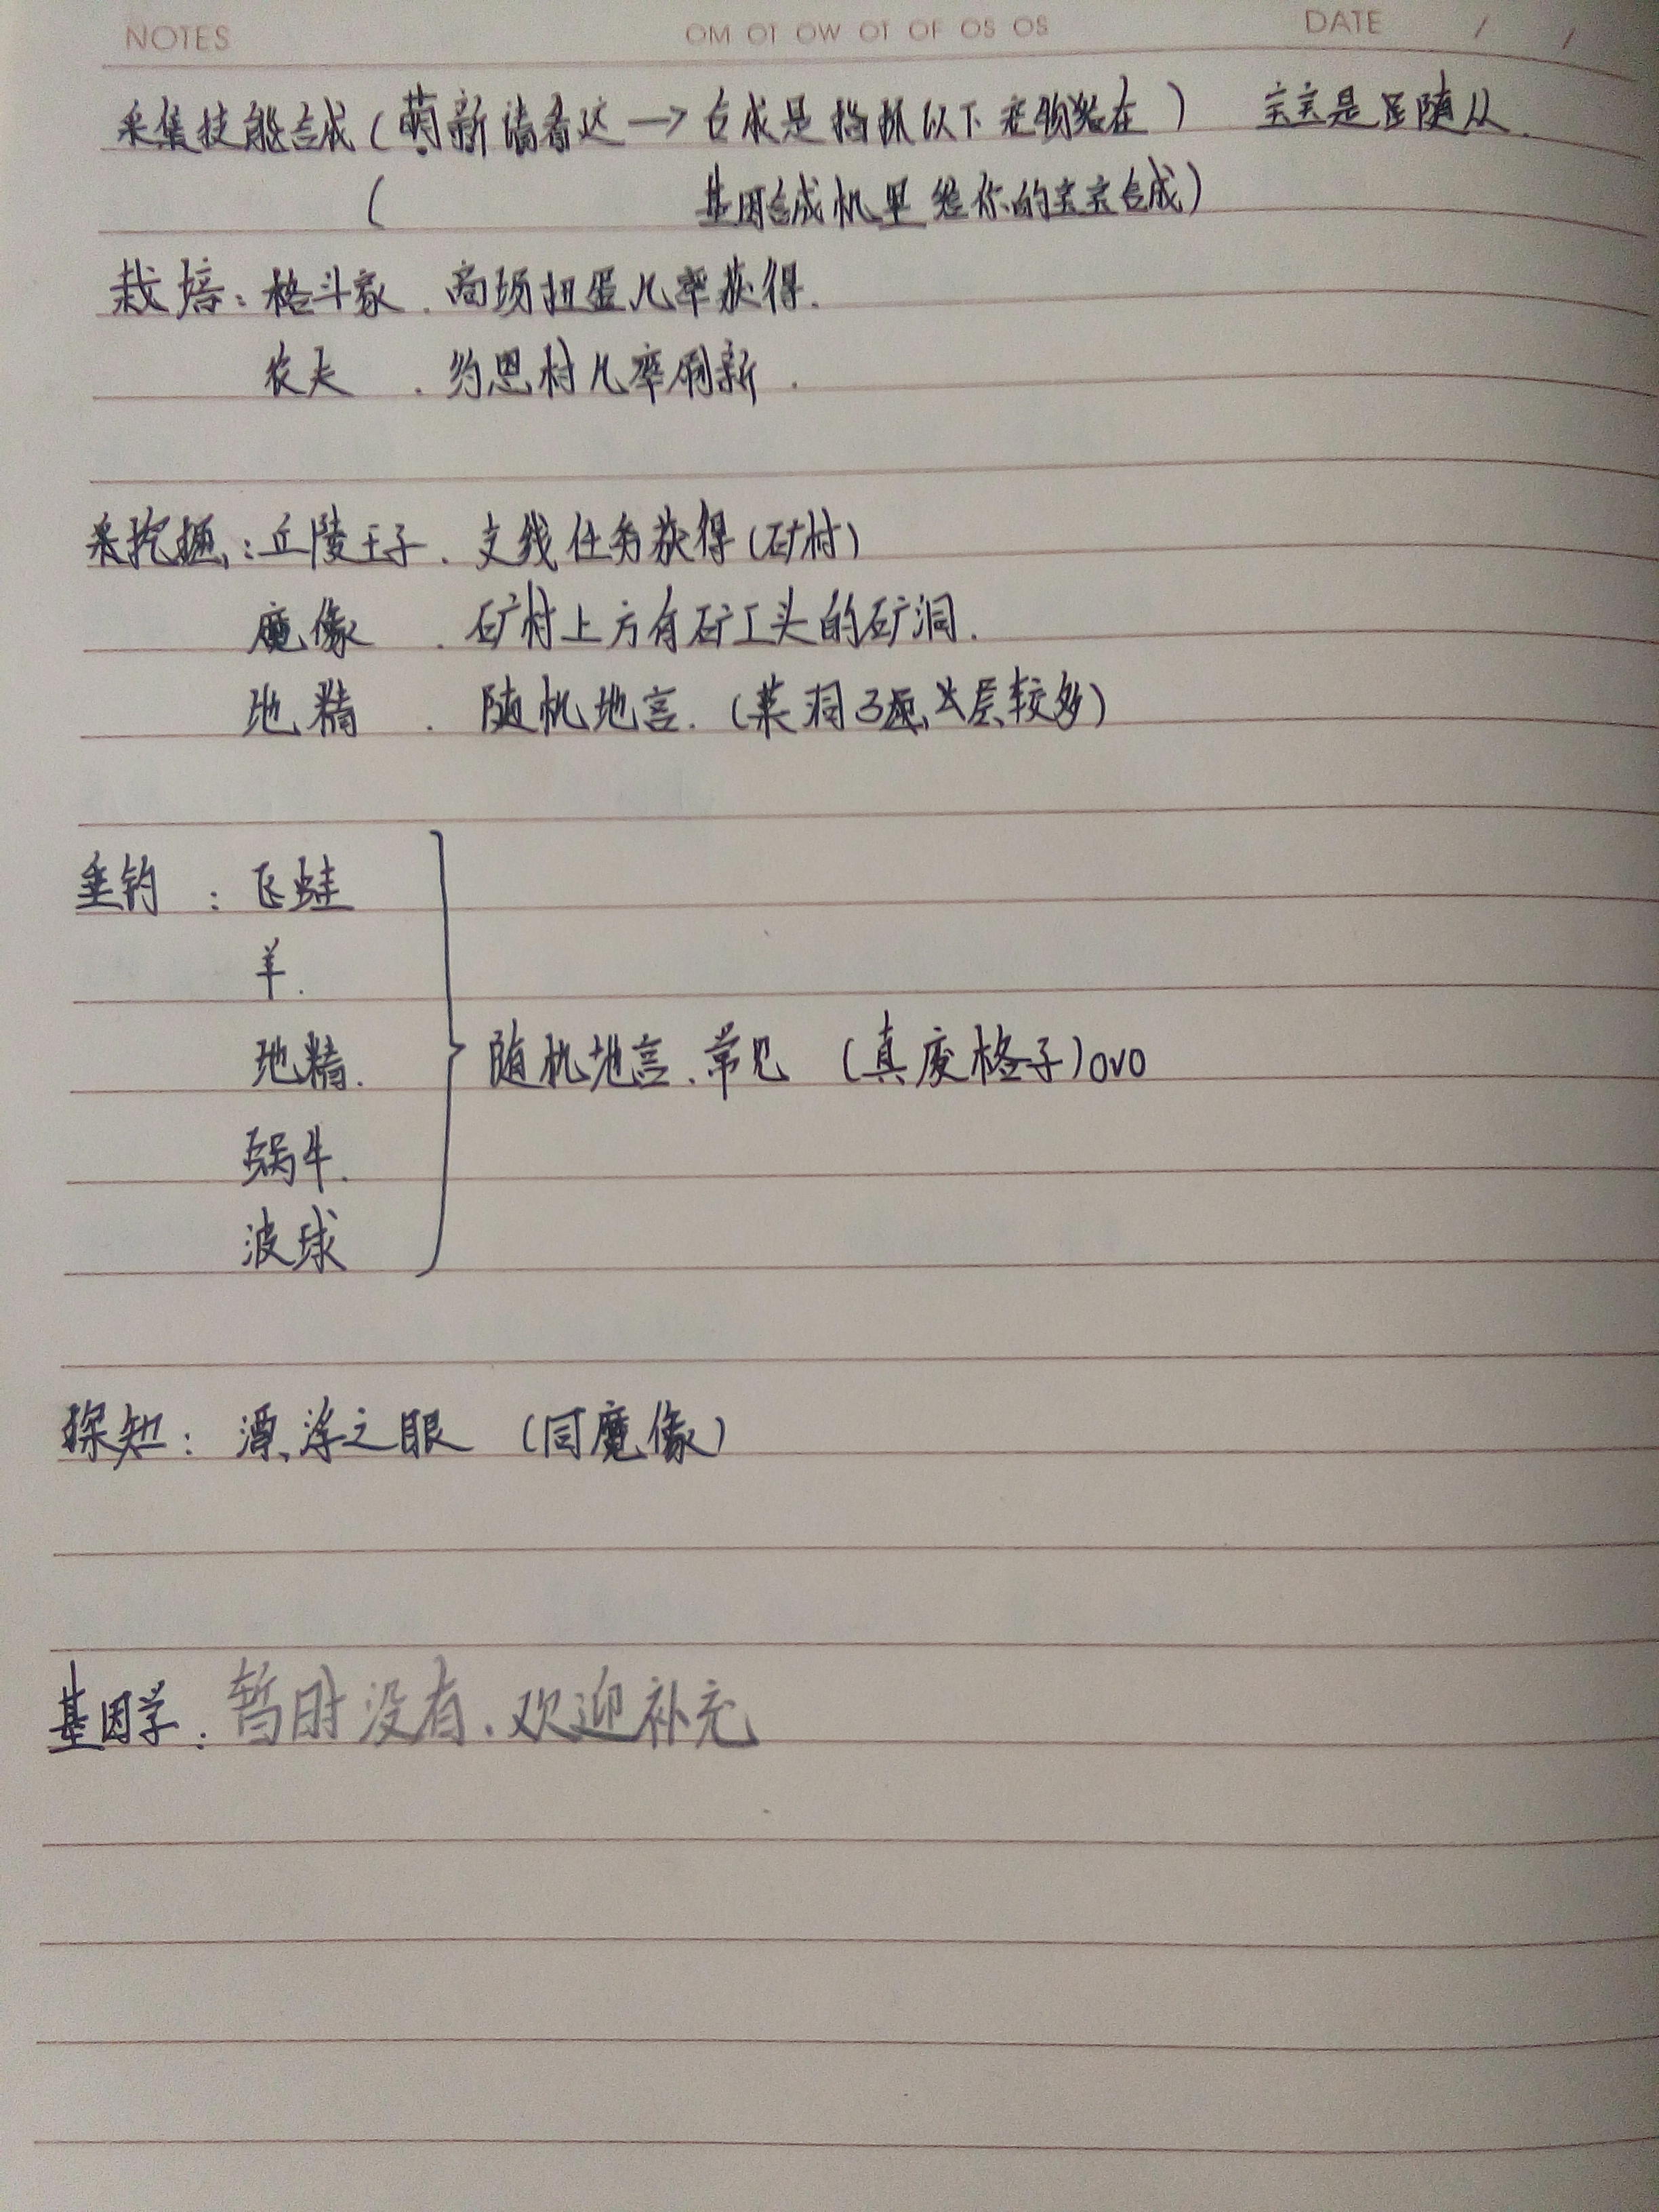 NOTES OM OT OW OT OF OS OS DATE / /
采集技能合成(萌新请看这→合成是指抓以下宠物然在) 宝宝是指随从.
( 基因合成机里给你的宝宝合成)
栽培:格斗家.商场扭蛋几率获得.
农夫.约恩村几率刷新.
采挖掘:丘陵王子.支线任务获得(矿村)
魔像.矿村上方有矿工头的矿洞.
地精.随机地宫.(菜洞3 层较多)
垂钓:飞蛙
羊.
地精.
随机地宫.常见 (真废格子)OVO
蜗牛.
波球
探知:漂浮之眼 (同魔像)
基因学.暂时没有.欢迎补充